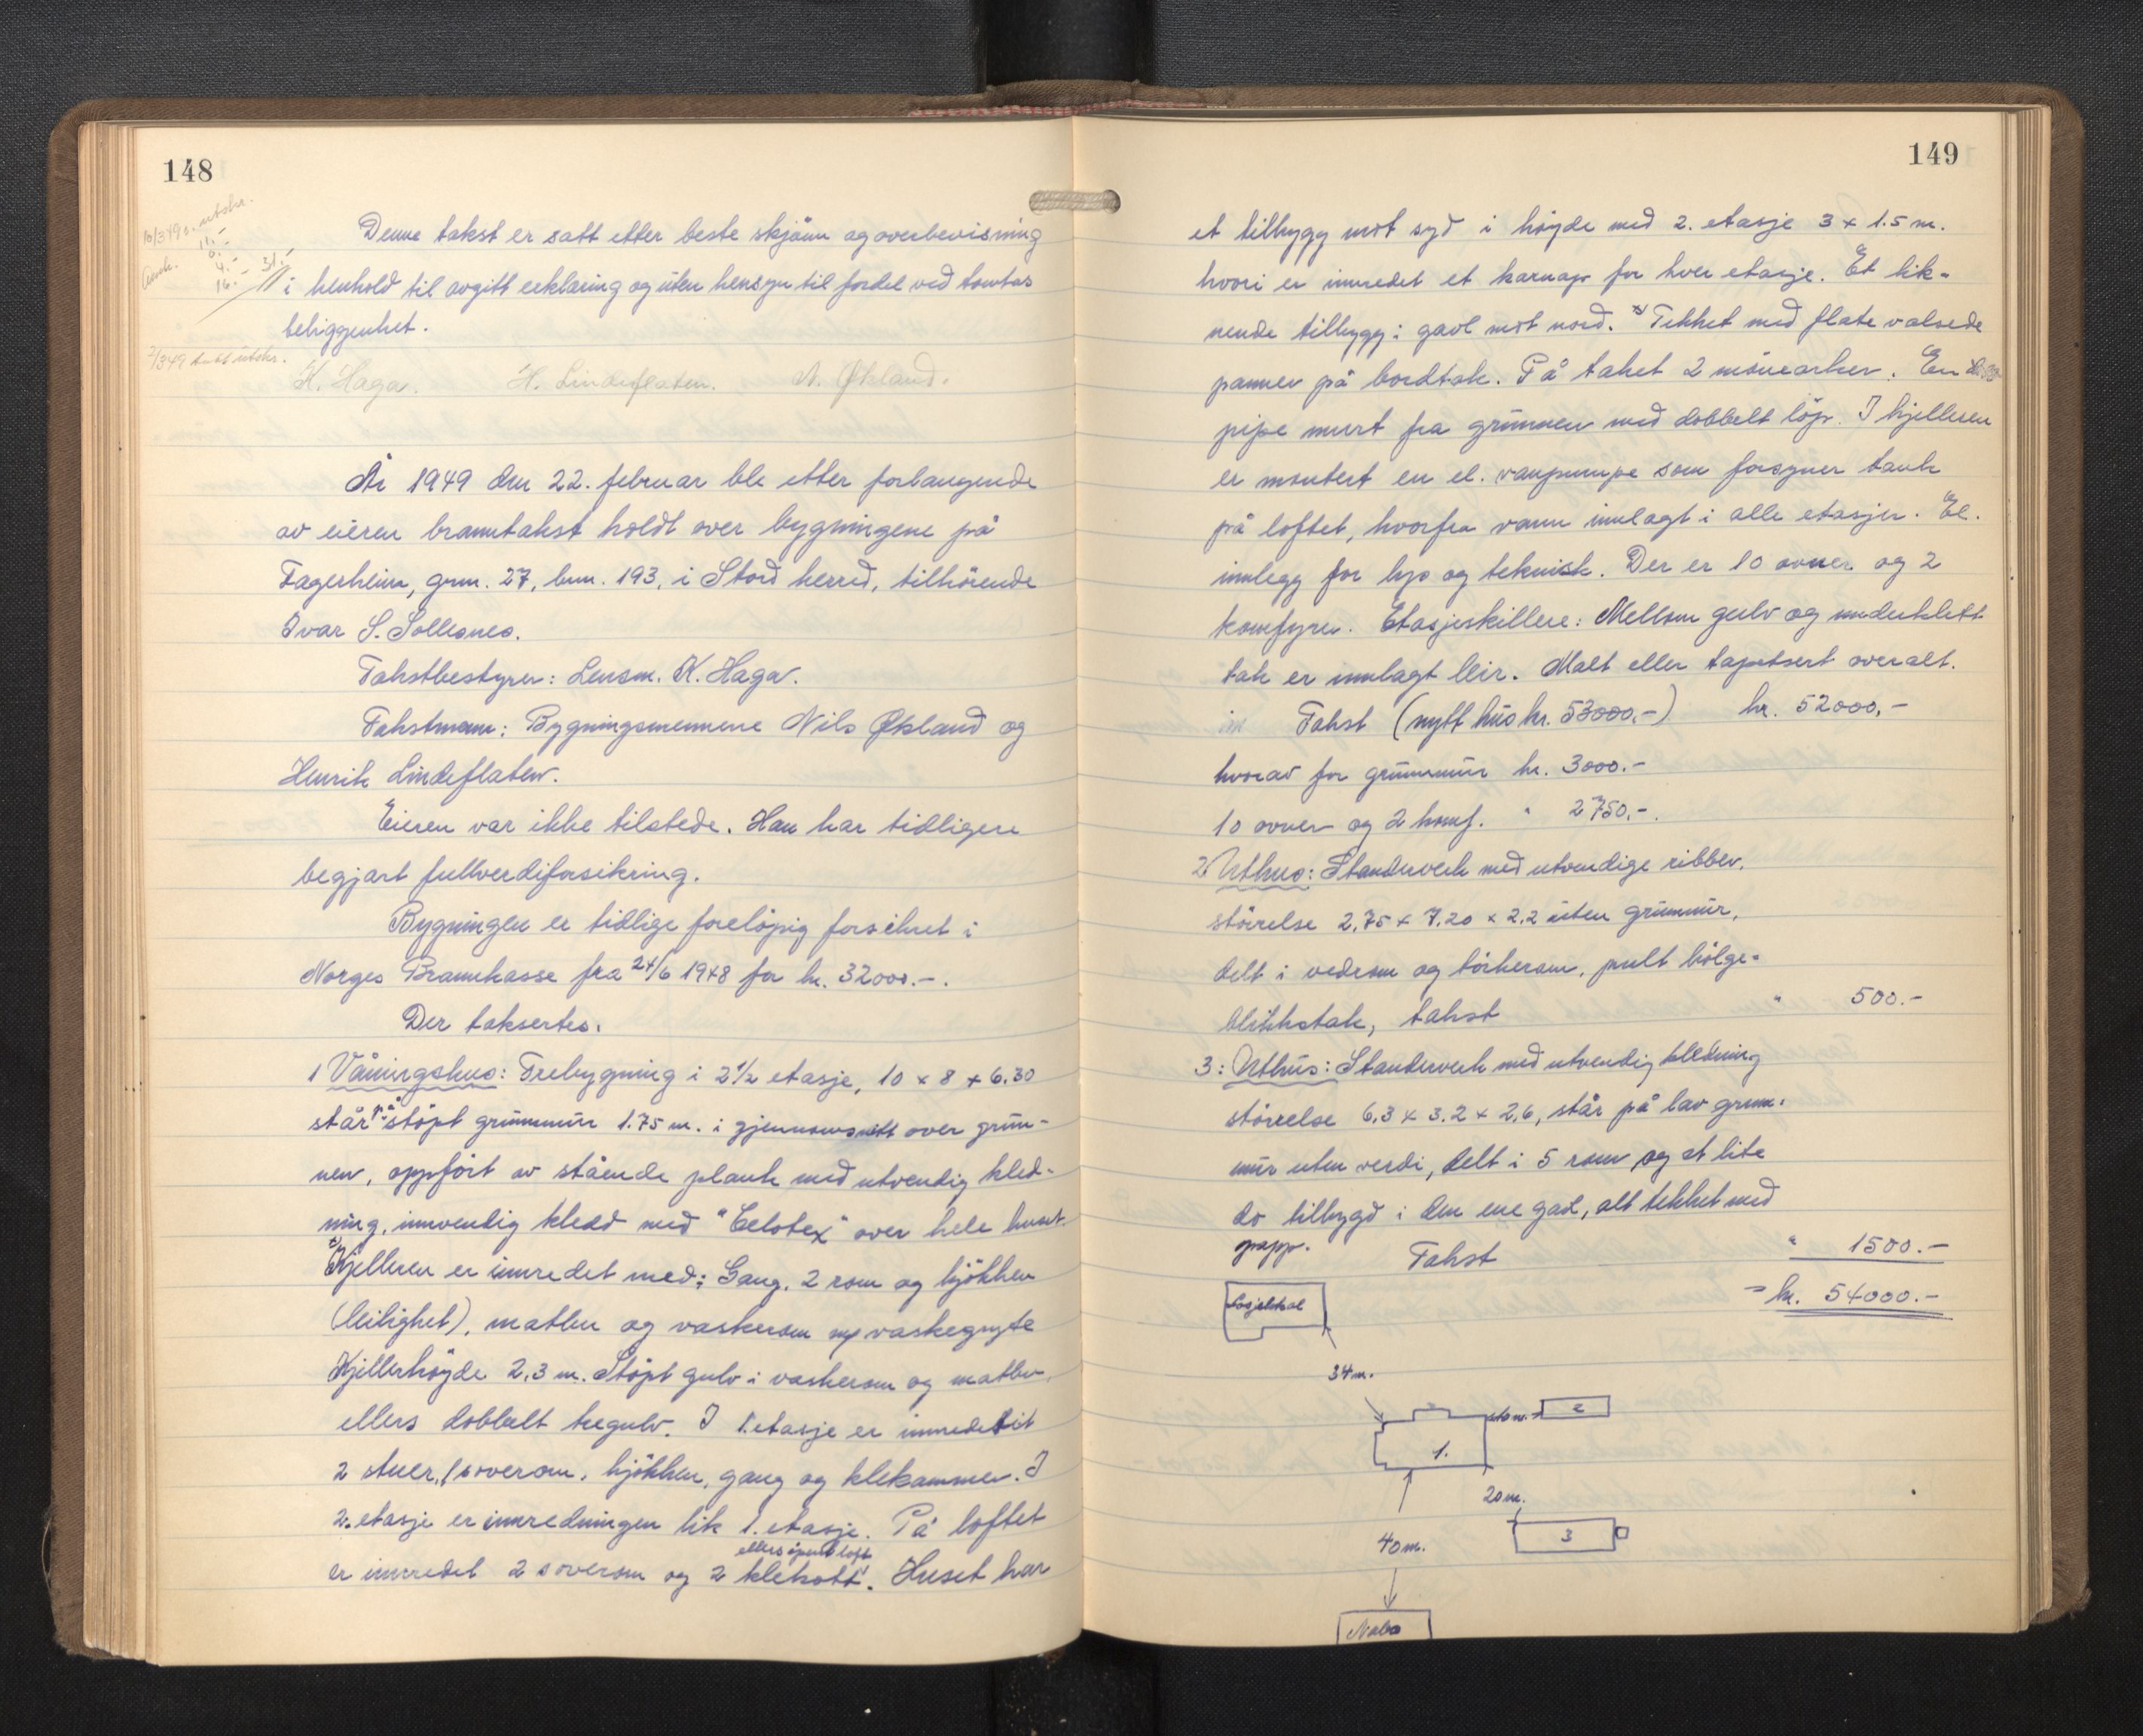 148
10/3 49 s. utskr.
11.-
6.-
4.-
16.-
31.-
Denne takst er satt etter beste skjönn og overbevisning
i henhold til avgitt erklæring og uten hensyn til fordel ved tomtas
beliggenhet.
7/3 49 satt utskr.
K. Haga. H. Lindeflaten. N. Økland.
År 1949 den 22. februar ble etter forlangende
av eieren branntakst holdt over bygningene på
Fagerheim, gnr. 27, bnr. 193, i Stord herred, tilhörende
Ivar S. Sollesnes.
Takstbestyrer: Lensm. K. Haga.
Takstmenn: Bygningsmennene Nils Økland og
Henrik Lindeflaten.
Eieren var ikke tilstede. Han har tidligere
begjært fullverdiforsikring.
Bygningen er tidlige forelöpig forsikret i
Norges Brannkasse fra 24/6 1948 for kr. 32000.-.
Der taksertes.
1 Våningshus: Trebygning i 2 1/2 etasje, 10 x 8 x 6.30
står på stöpt grunnmur 1.75 m. i gjennomsnitt over grun-
nen, oppfört av stående plank med utvendig kled-
ning, innvendig kledd med "Celotex" over hele huset.
x) Kjelleren er innredet med: Gang, 2 rom og kjökken
(leilighet), matbu og vaskerom m/ vaskegryte
Kjellerhöyde 2,3 m. Stöpt gulv i vaskerom og matbu,
ellers dobbelt tregulv. I 1. etasje er innredet
2 stuer, 1 soverom, kjökken, gang og klekammer. I
2. etasje er innredningen lik 1. etasje. På loftet
ellers åpent loft
er innredet 2 soverom og 2 klekott. Huset har
149
et tilbygg mot syd i höyde med 2. etasje 3 x 1.5 m.
hvori er innredet et karnap for hver etasje. Et lik-
nende tilbygg i gavl mot nord. x) Tekket med flate valsede
panner på bordtak. På taket 2 mönearker. En
pipe murt fra grunnen med dobbelt löp. I kjelleren
er montert en el. vanpumpe som forsyner tank
på loftet, hvorfra vann innlagt i alle etasjer. El.
innlegg for lys og teknisk. Der er 10 ovner og 2
komfyrer. Etasjeskillere: Mellom gulv og underkledt
tak er innlagt leir. Malt eller tapetsert overalt.
Takst (nytt hus kr. 53000,-) kr. 52000,-
hvorav for grunnmur kr. 3000.-
10 ovner og 2 komf. " 2750,-.
2. Uthus: Standerverk med utvendige ribber,
störrelse 2,75 x 7,20 x 2,2 uten grunmur,
delt i vedrom og törkerom, pult bölge-
blikkstak, takst " 500.-
3: Uthus: Standerverk med utvendig kledning
störrelse 6,3 x 3.2 x 2,6, står på lav grunn-
mur uten verdi, delt i 5 rom og et lite
do tilbygd i den ene gavl, alt tekket med
papp. Takst " 1500.-
= kr. 54000.-
Losjelokal
34 m.
10 m.
2
1.
20 m.
3
40 m.
Nabo